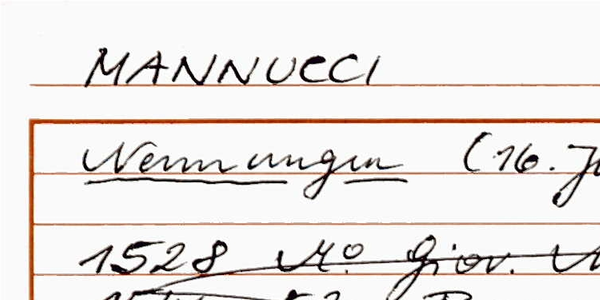 MANNUCCI
Nennungen (16. J
1528 Mo. Giov.